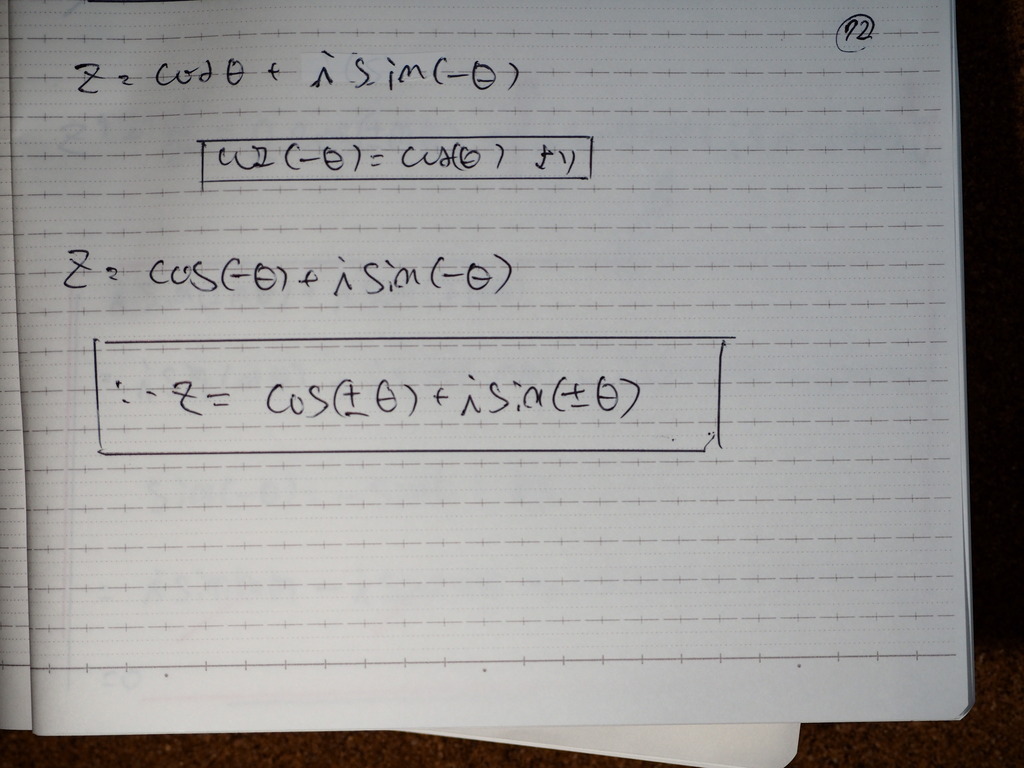 92
Z = cosθ + i sin(-θ)
cos(-θ) = cos(θ) より
Z = cos(-θ) + i sin(-θ)
∴ Z = cos(±θ) + i sin(±θ)